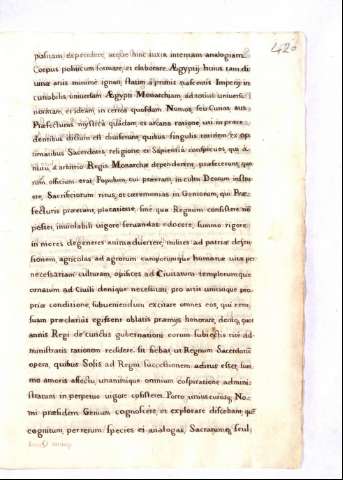 420
positam expendere, atque hinc iuxta internam analogiam
Corpus politicum formare, et elaborare. Ægyptij huius tam di
uinæ artis minimè ignari, statim à primis nascentis Imperij in
cunabilis uniuersam Ægypti Monarchiam, ad totius uniuersi
normam, et ideam, in certos quosdam Nomos, seu Cunas, aut
Præfecturas mystica quâdam, et arcana ratione uti in præce
dentibus dictum est diuiserunt, quibus singulis totidem ex op
timatibus Sacerdotes, religione et Sapientiâ conspicuos, qui à
nutu, et arbitrio Regis Monarchæ dependerent, præfecerunt, quo
rum officium erat, Populum, cui præerant, in cultu Deorum instru
ere, Sacrificiorum ritus, et cæremonias in Geniorum, qui Præ
fecturis præerant, placatione, sine quâ Regnum consistere ne
posset, inuiolabili uigore seruandas edocere; summo rigore
in mores degeneres animaduertere, milites ad patriæ defen
sionem, agricolas ad agrorum camporumque humanæ uitæ per
necessariam culturam, opifices ad Ciuitatum templorumque
ornatum ad Ciuili denique necessitati pro artis uniuscuiusque pro
priæ conditione, subueniendum excitare omnes eos, qui rem
suam præclarius egissent oblatis præmijs honorare, denique quot
annis Regi de cunctis gubernationi eorum subiectis ritè ad
ministratis rationem reddere. sit
ut Regnum Sacerdotum
opera, quibus Solis ad Regni successionem aditus esset, sum
mo amoris affectu, unanimique omnium conspiratione admini
stratum in perpetuo uigore consisteret. Porro unius cuiusque No
mi præsidem Genium cognoscere, et explorare discebant; quo
cognitum, per rerum species ei analogas, Sacrarumque scul,